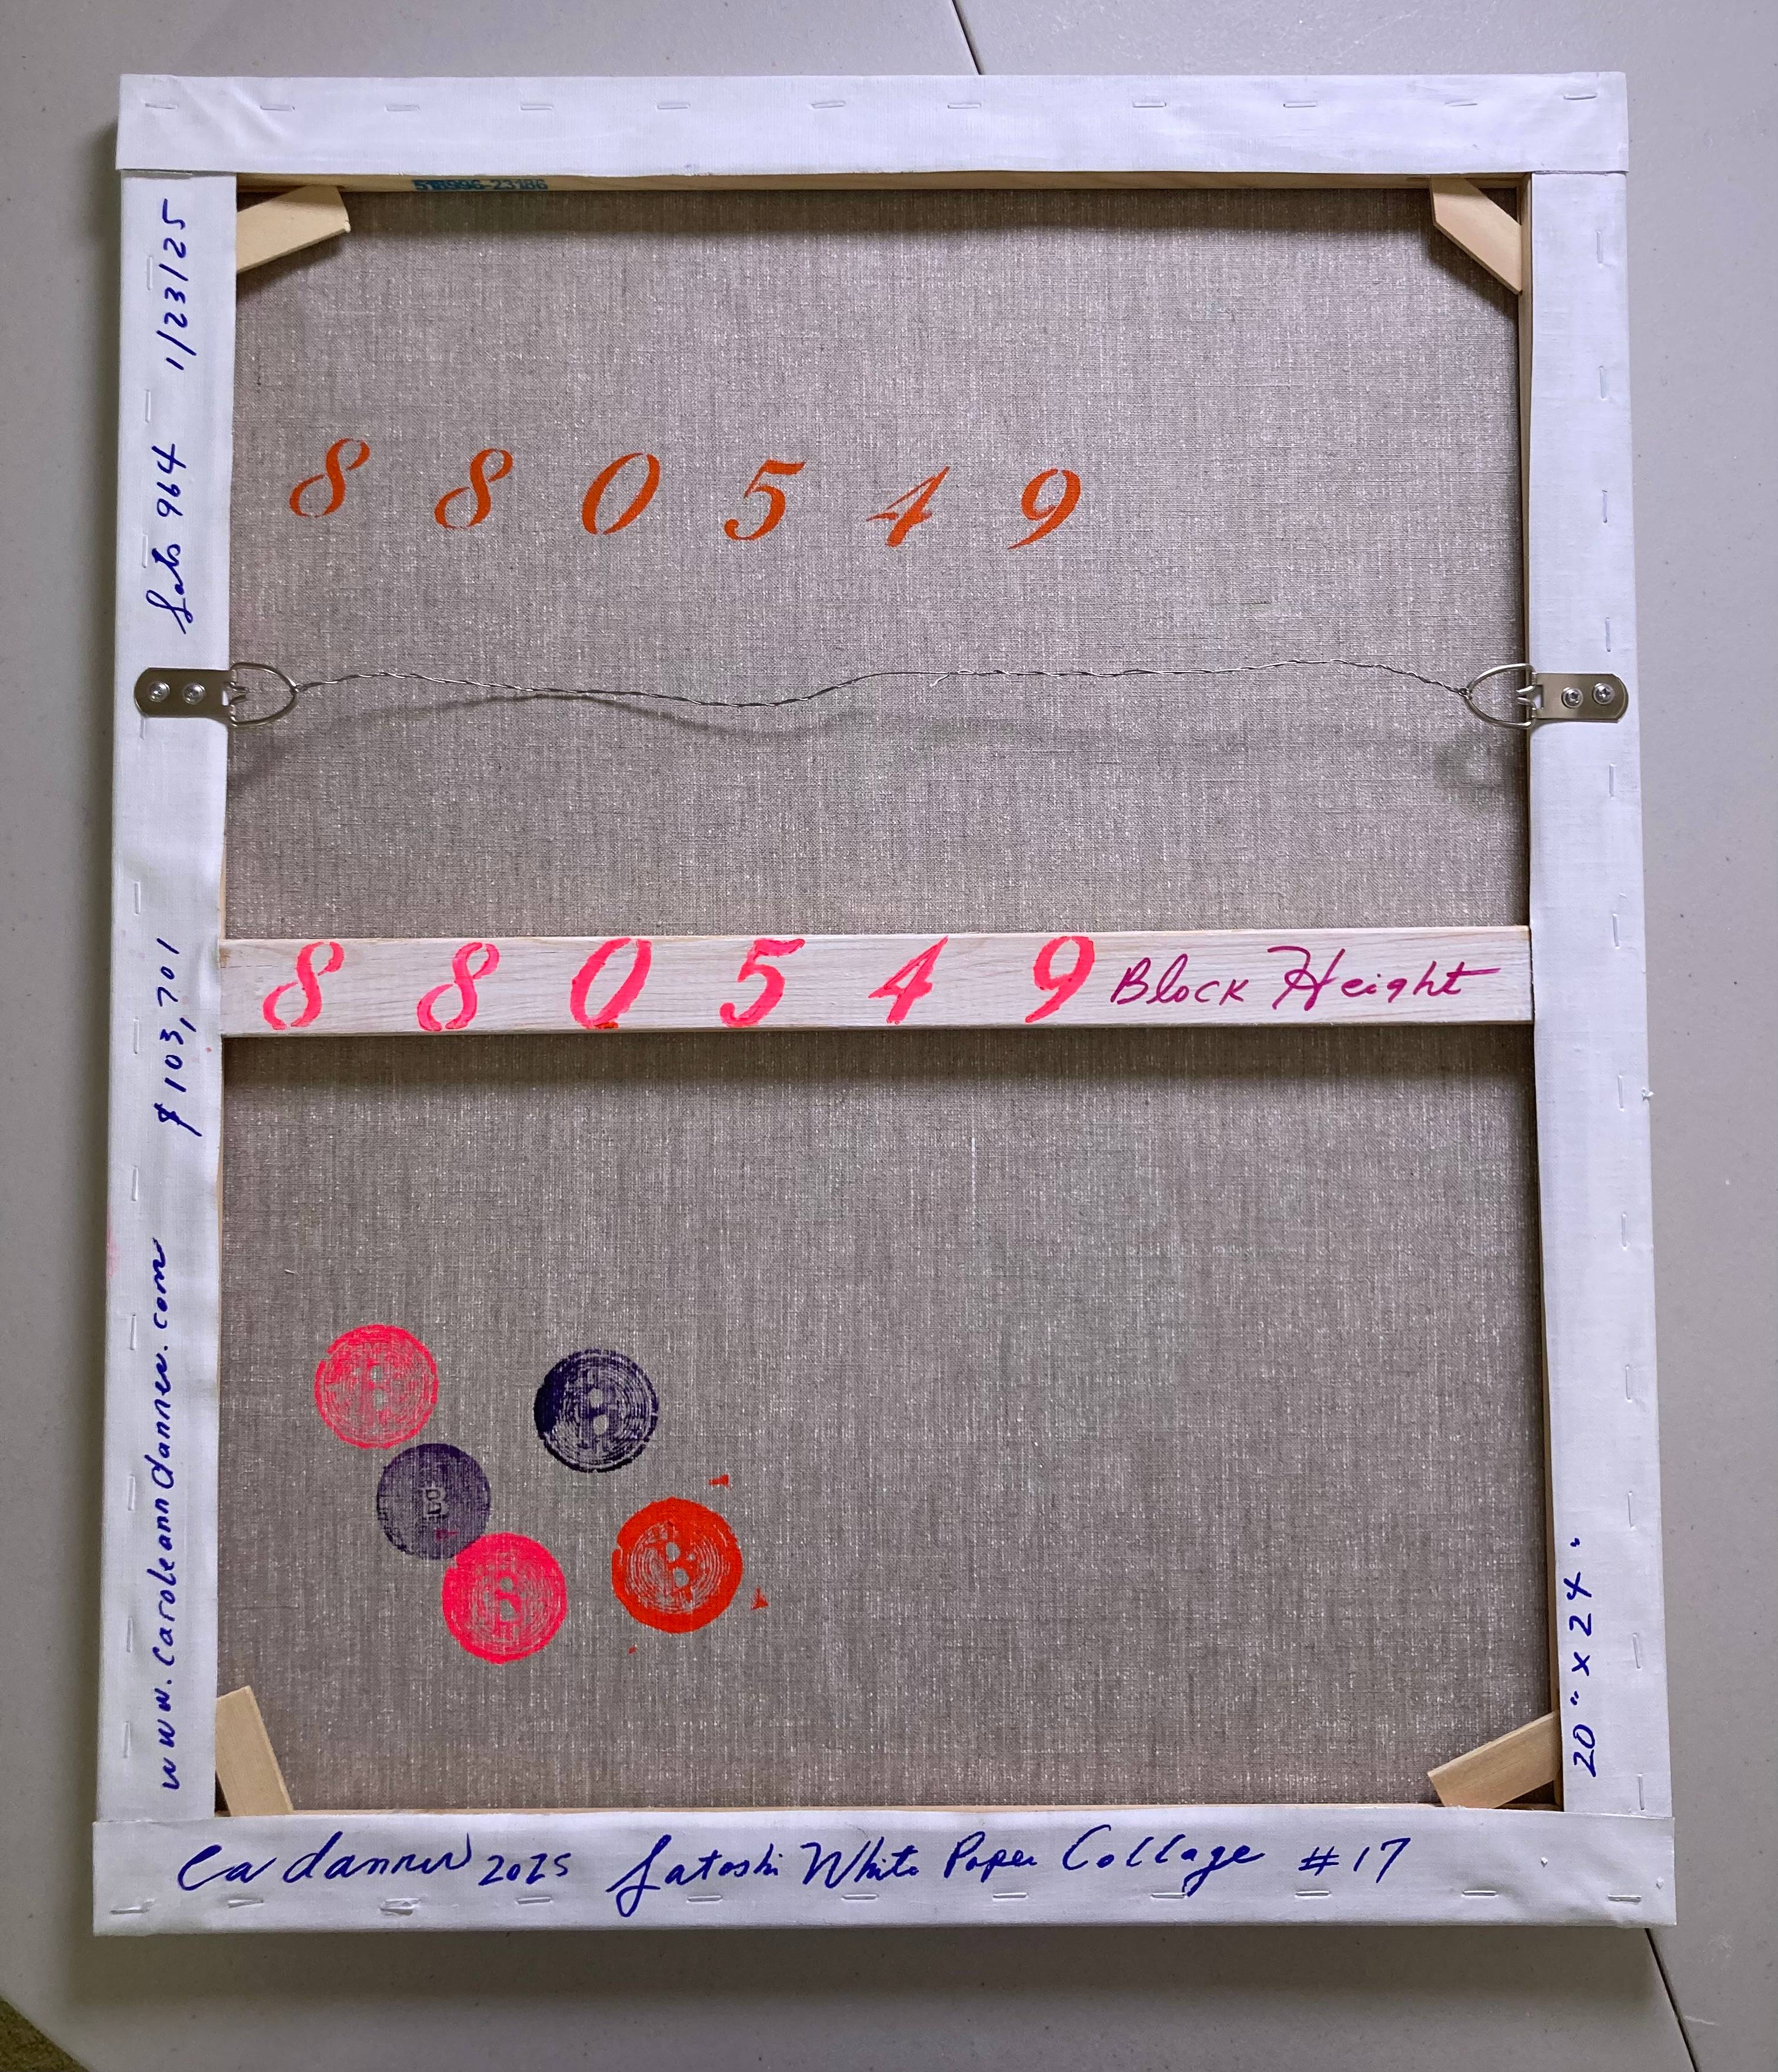 Sats 964 1/23/25
880549
880549 Block Height
$103,701
www.caroleanndanner.com
20" x 24"
Ca danner 2025 Satoshi White Paper Collage #17